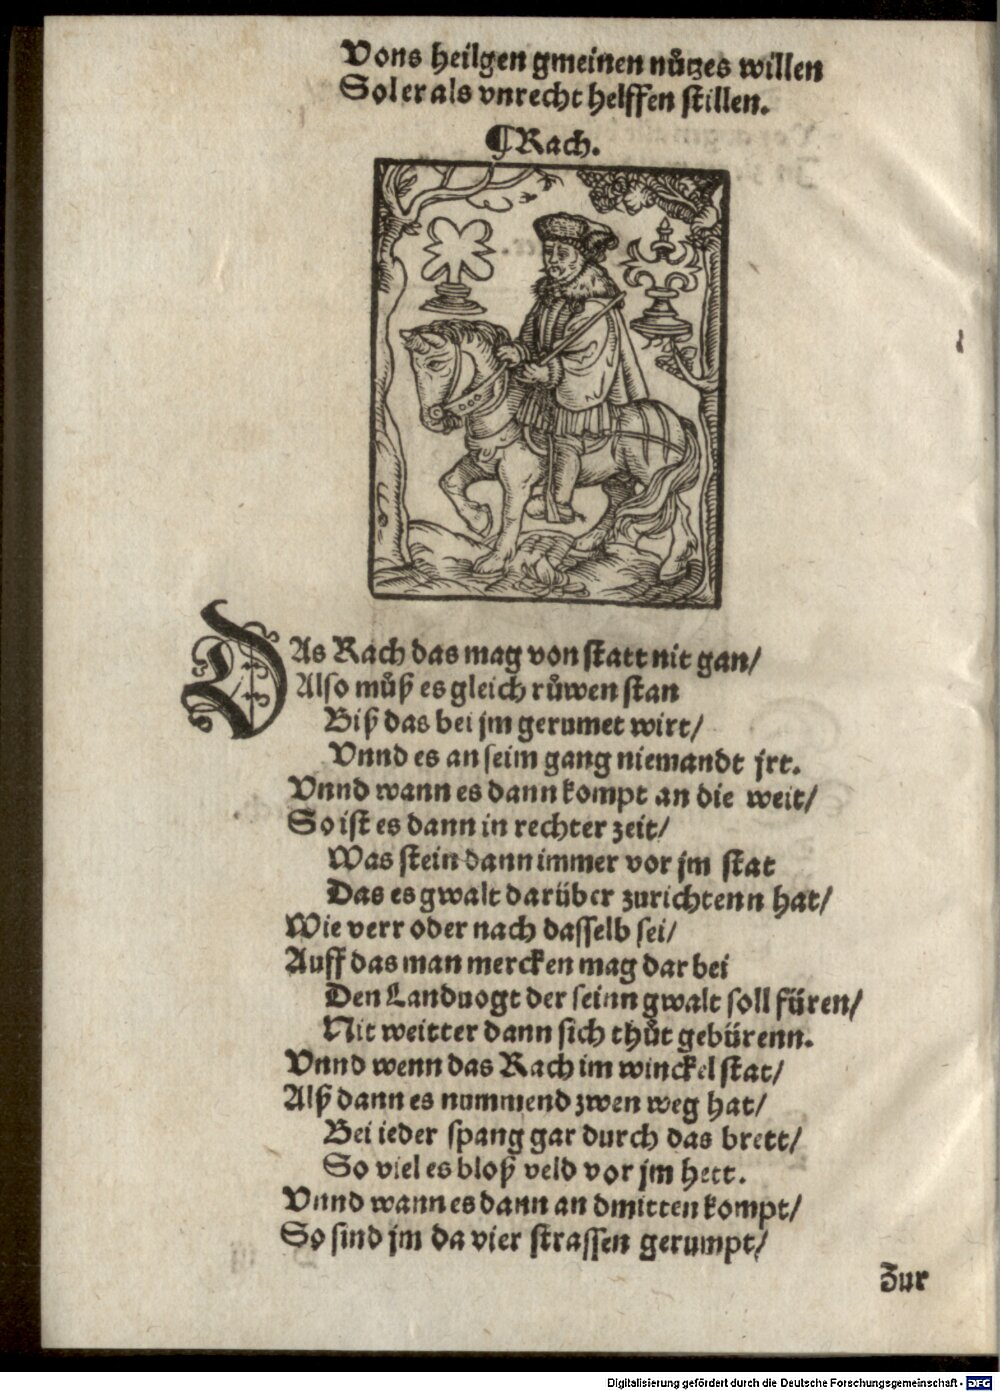 Vons heilgen gmeinen nůtzes willen
Sol er als vnrecht helffen stillen.
¶Rach.
DAs Rach das mag von statt nit gan/
Also můß es gleich růwen stan
Biß das bei jm gerumet wirt/
Vnnd es an seim gang niemandt jrt.
Vnnd wann es dann kompt an die weit/
So ist es dann in rechter zeit/
Was stein dann immer vor jm stat
Das es gwalt darüber zurichtenn hat/
Wie verr oder nach dasselb sei/
Auff das man mercken mag dar bei
Den Landuogt der seinn gwalt soll füren/
Nit weitter dann sich thůt gebürenn.
Vnnd wenn das Rach im winckel stat/
Alß dann es nummend zwen weg hat/
Bei ieder spang gar durch das brett/
So viel es bloß veld vor jm hett.
Vnnd wann es dann an dmitten kompt/
So sind jm da vier strassen gerumpt/
Zur
Digitalisierung gefördert durch die Deutsche Forschungsgemeinschaft - DFG